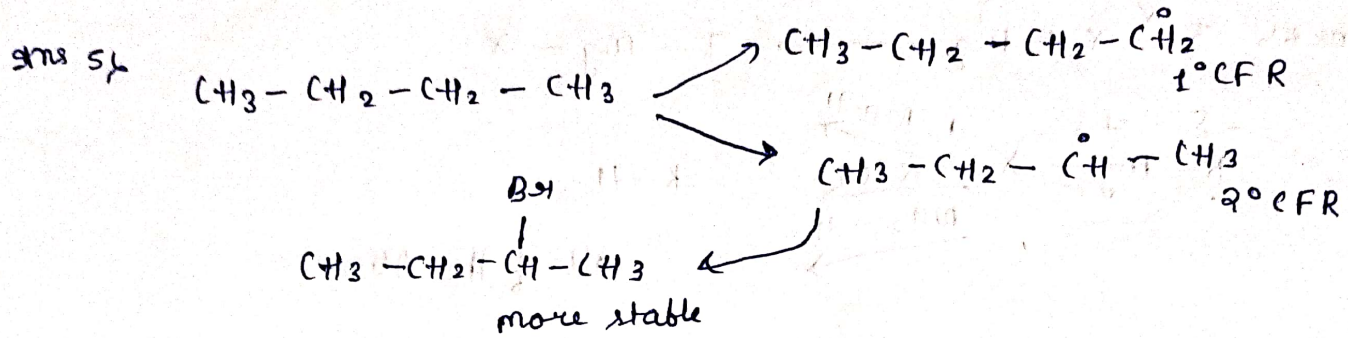 Ans 5)
CH3 - CH2 - CH2 - CH3
CH3 - CH2 - CH2 - CH2
1° CFR
CH3 - CH2 - CH - CH3
2° CFR
Br
CH3 - CH2 - CH - CH3
more stable